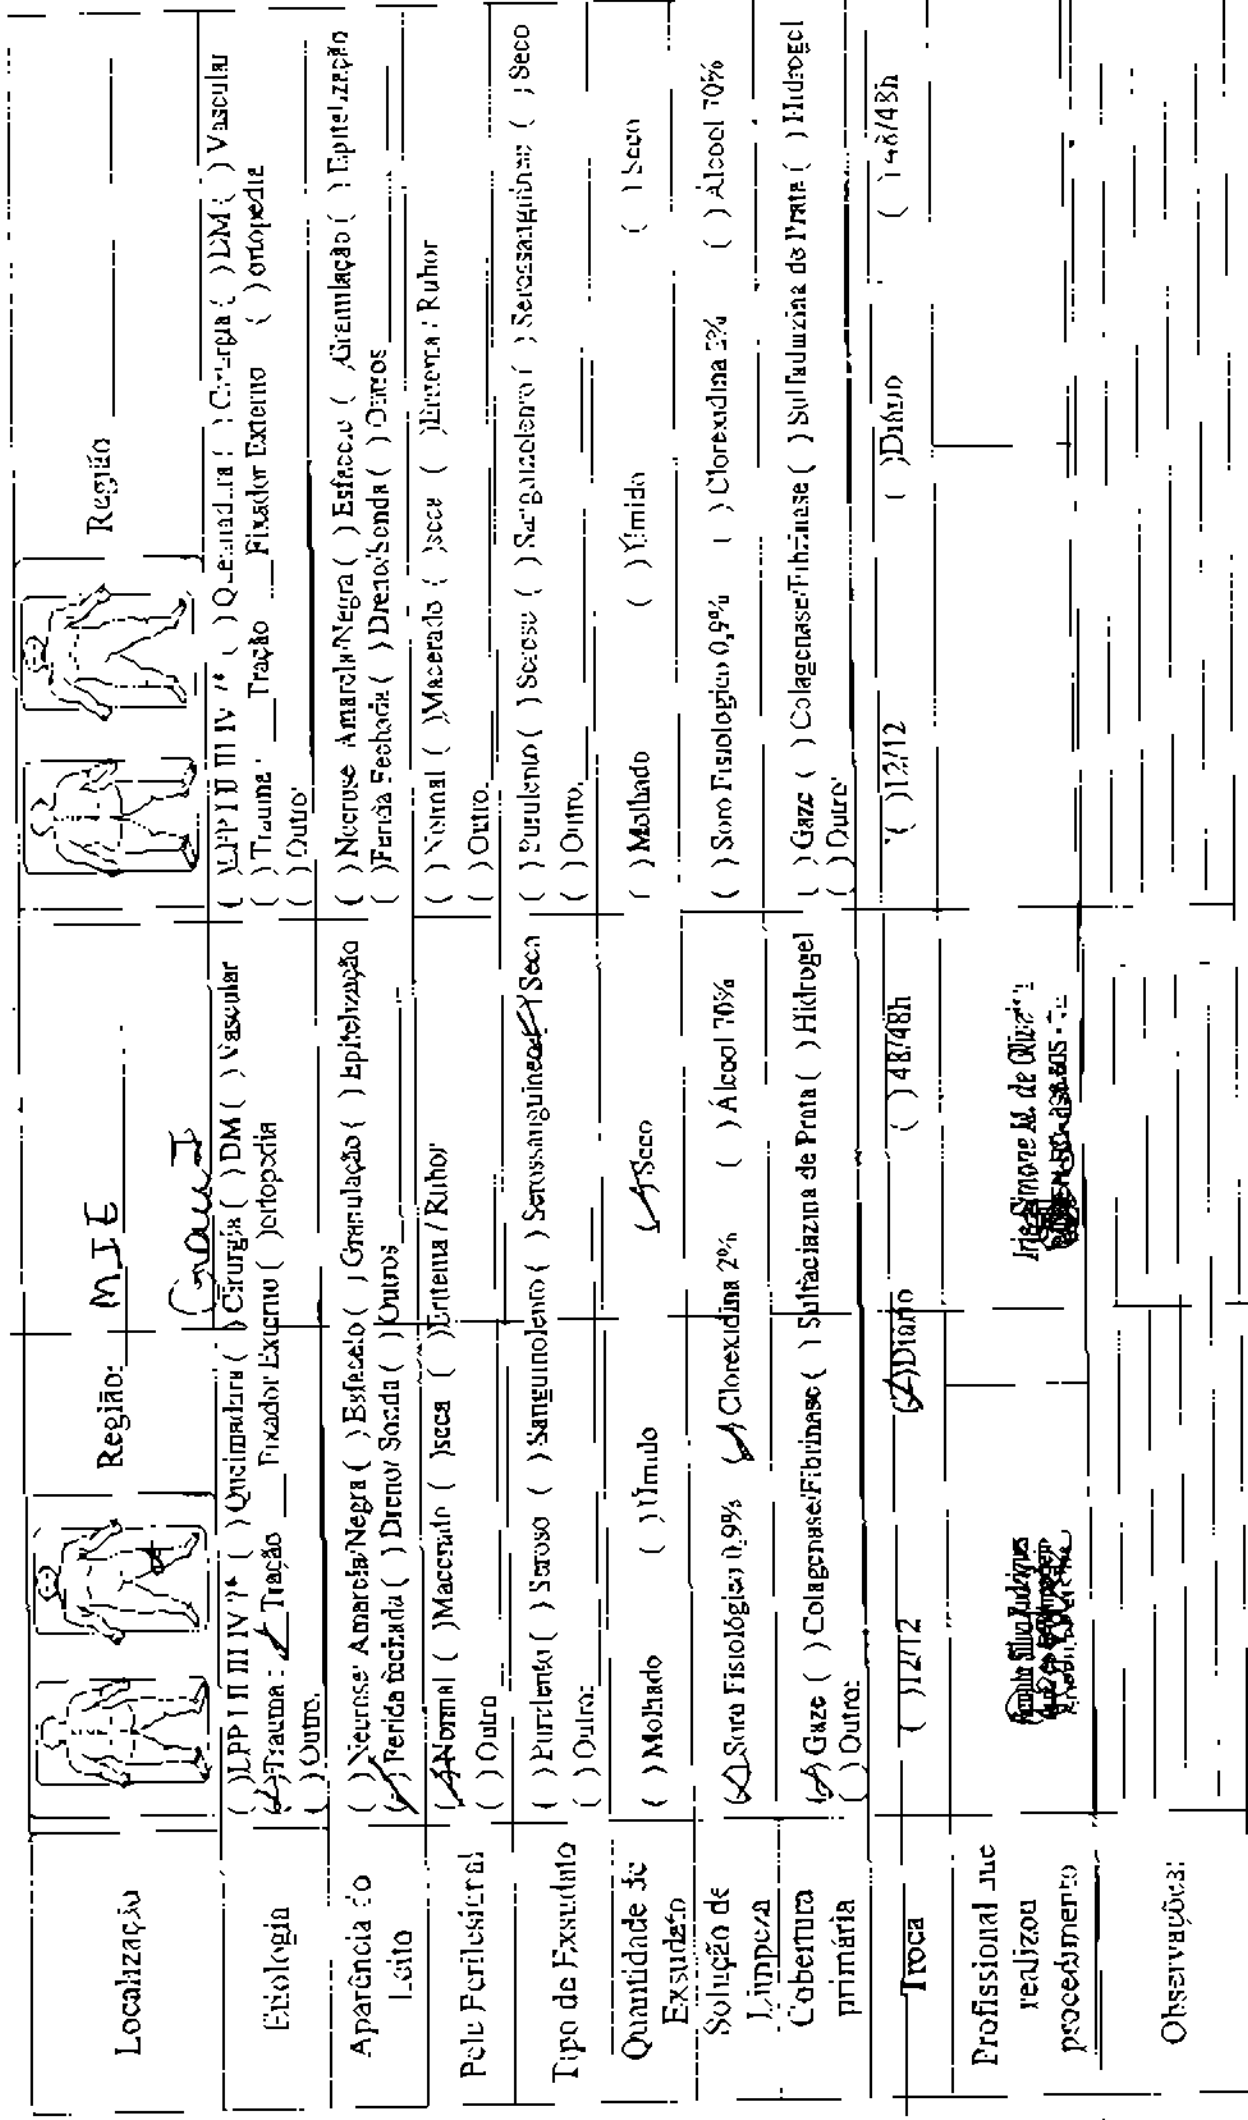 Localização
Região: MIE
Grau I
Região
Etiologia
( )LPP I II III IV ?* ( )Queimadura ( )Cirurgia ( )DM ( )Vascular
(✓)Trauma: ✓ Tração ___ Fixador Externo ( )ortopedia
( )Outro.
( )LPP I II III IV ?* ( )Queimadura ( )Cirurgia ( )DM ( )Vascular
( )Trauma: ___ Tração ___ Fixador Externo ( )ortopedia
( )Outro:
Aparência do Leito
( )Necrose Amarela/Negra ( )Esfacelo ( )Granulação ( )Epitelização
(✓)Ferida fechada ( )Dreno/ Sonda ( )Outros
( )Necrose Amarela/Negra ( )Esfacelo ( )Granulação ( )Epitelização
( )Ferida Fechada ( )Dreno/Sonda ( )Outros
Pele Perilesional
(✓)Normal ( )Macerado ( )seca ( )Eritema / Rubor
( )Outro
( )Normal ( )Macerado ( )seca ( )Eritema / Rubor
( )Outro.
Tipo de Exsudato
( )Purulento ( )Seroso ( )Sanguinolento ( )Serossanguineo (✓)Seco
( )Outro:
( )Purulento ( )Seroso ( )Sanguinolento ( )Serossanguineo ( )Seco
( )Outro.
Quantidade de Exsudato
( )Molhado ( )Úmido (✓)Seco
( )Molhado ( )Úmido ( )Seco
Solução de Limpeza
(✓)Soro Fisiológico 0,9% (✓)Clorexidina 2% ( )Álcool 70%
( )Soro Fisiologico 0,9% ( )Clorexidina 2% ( )Álcool 70%
Cobertura primária
(✓)Gaze ( )Colagenase/Fibrinase ( )Sulfadiazina de Prata ( )Hidrogel
( )Outro:
( )Gaze ( )Colagenase/Fibrinase ( )Sulfadiazina de Prata ( )Hidrogel
( )Outro:
Troca
( )12/12 (✓)Diário ( )48/48h
( )12/12 ( )Diário ( )48/48h
Profissional que realizou procedimento
Silva Rodrigues
Simone M. de Oliveira
Observações: